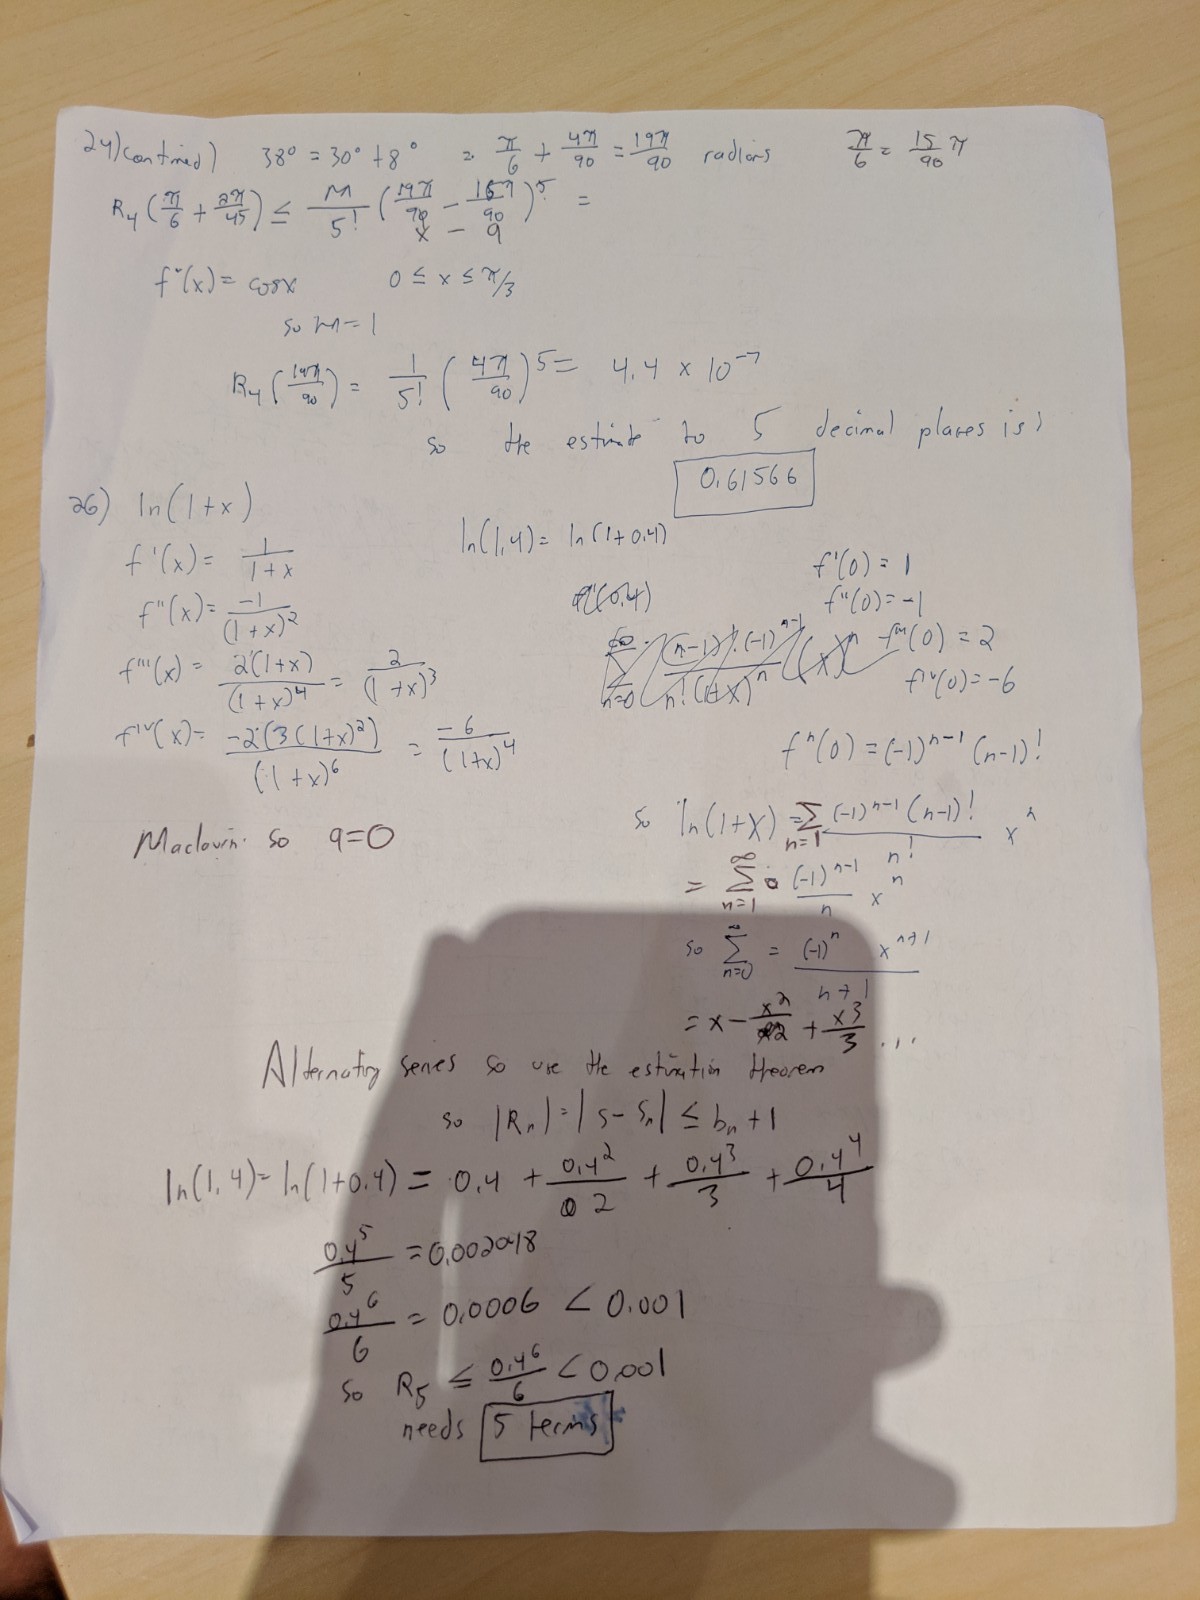 24) continued) 38° = 30° + 8° = π/6 + 4π/90 = 19π/90 radians π/6 = 15/90 π
R₄(π/6 + 2π/45) ≤ M/5! (19π/90 - 15π/90)⁵ =
x - a
f⁵(x) = cosx 0 ≤ x ≤ π/3
so M = 1
R₄(19π/90) = 1/5! (4π/90)⁵ = 4.4 × 10⁻⁷
so the estimate to 5 decimal places is)
0.61566
26) ln(1+x)
ln(1.4) = ln(1+0.4)
f'(x) = 1/(1+x)
f'(0) = 1
f''(x) = -1/(1+x)²
f''(0) = -1
f'''(x) = 2(1+x)/(1+x)⁴ = 2/(1+x)³
f'''(0) = 2
fⁱᵛ(0) = -6
fⁱᵛ(x) = -2(3(1+x)²)/(1+x)⁶ = -6/(1+x)⁴
fⁿ(0) = (-1)ⁿ⁻¹ (n-1)!
Maclaurin so a=0
so ln(1+x) = Σ n=1 (-1)ⁿ⁻¹ (n-1)!/n! xⁿ
= ∞ Σ n=1 (-1)ⁿ⁻¹/n xⁿ
so ∞ Σ n=0 = (-1)ⁿ xⁿ⁺¹/n+1
= x - x²/2 + x³/3 ...
Alternating series so use the estimation theorem
so |Rₙ| = |s - sₙ| ≤ bₙ + 1
ln(1.4) = ln(1+0.4) = 0.4 + 0.4²/2 + 0.4³/3 + 0.4⁴/4
0.4⁵/5 = 0.002048
0.4⁶/6 = 0.0006 < 0.001
so R₅ ≤ 0.4⁶/6 < 0.001
needs 5 terms